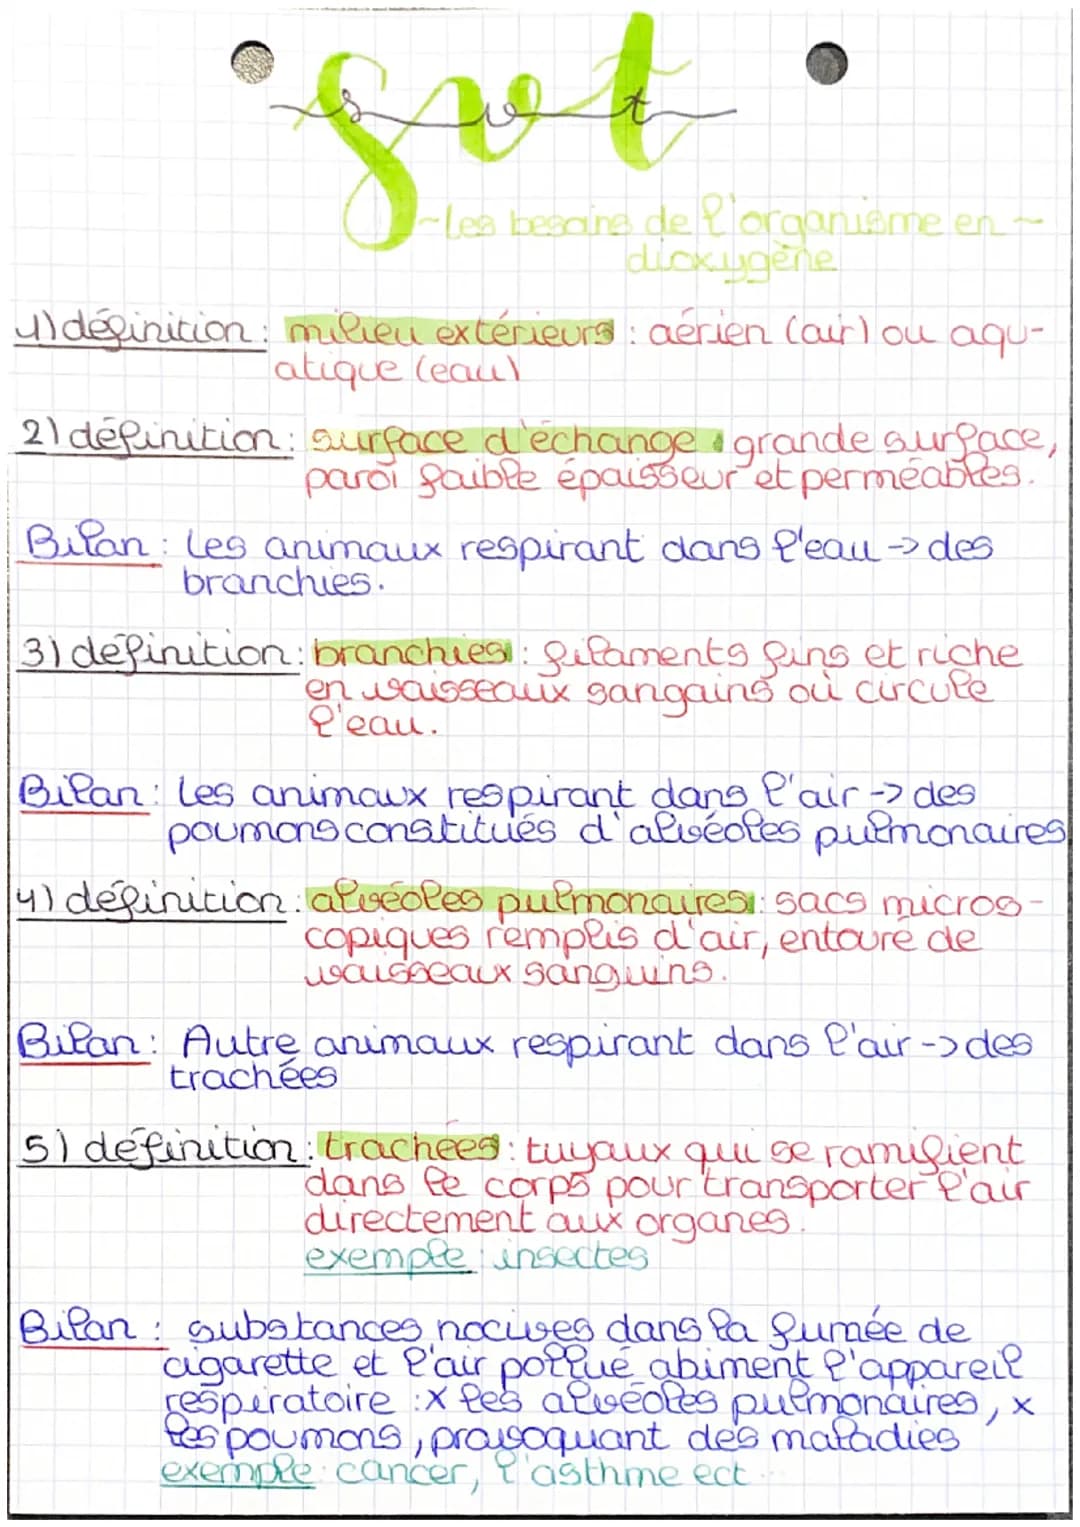 svt
~Les besoins de l'organisme en~
dioxygène
1) définition : milieu extérieurs : aérien (air) ou aqu-
atique (eau)
2) définition : surface d'échange : grande surface,
paroi faible épaisseur et perméables.
Bilan : Les animaux respirant dans l'eau -> des
branchies.
3) définition : branchies : filaments fins et riche
en vaisseaux sangains où circule
l'eau.
Bilan : Les animaux respirant dans l'air -> des
poumons constitués d'alvéoles pulmonaires
4) définition : alvéoles pulmonaires : sacs micros-
copiques remplis d'air, entouré de
vaisseaux sanguins.
Bilan : Autre animaux respirant dans l'air -> des
trachées
5) définition : trachées : tuyaux qui se ramifient
dans le corps pour transporter l'air
directement aux organes.
exemple : insectes
Bilan : substances nocives dans la fumée de
cigarette et l'air pollué abiment l'appareil
respiratoire : x les alvéoles pulmonaires, x
les poumons, provoquant des maladies
exemple : cancer, l'asthme ect...